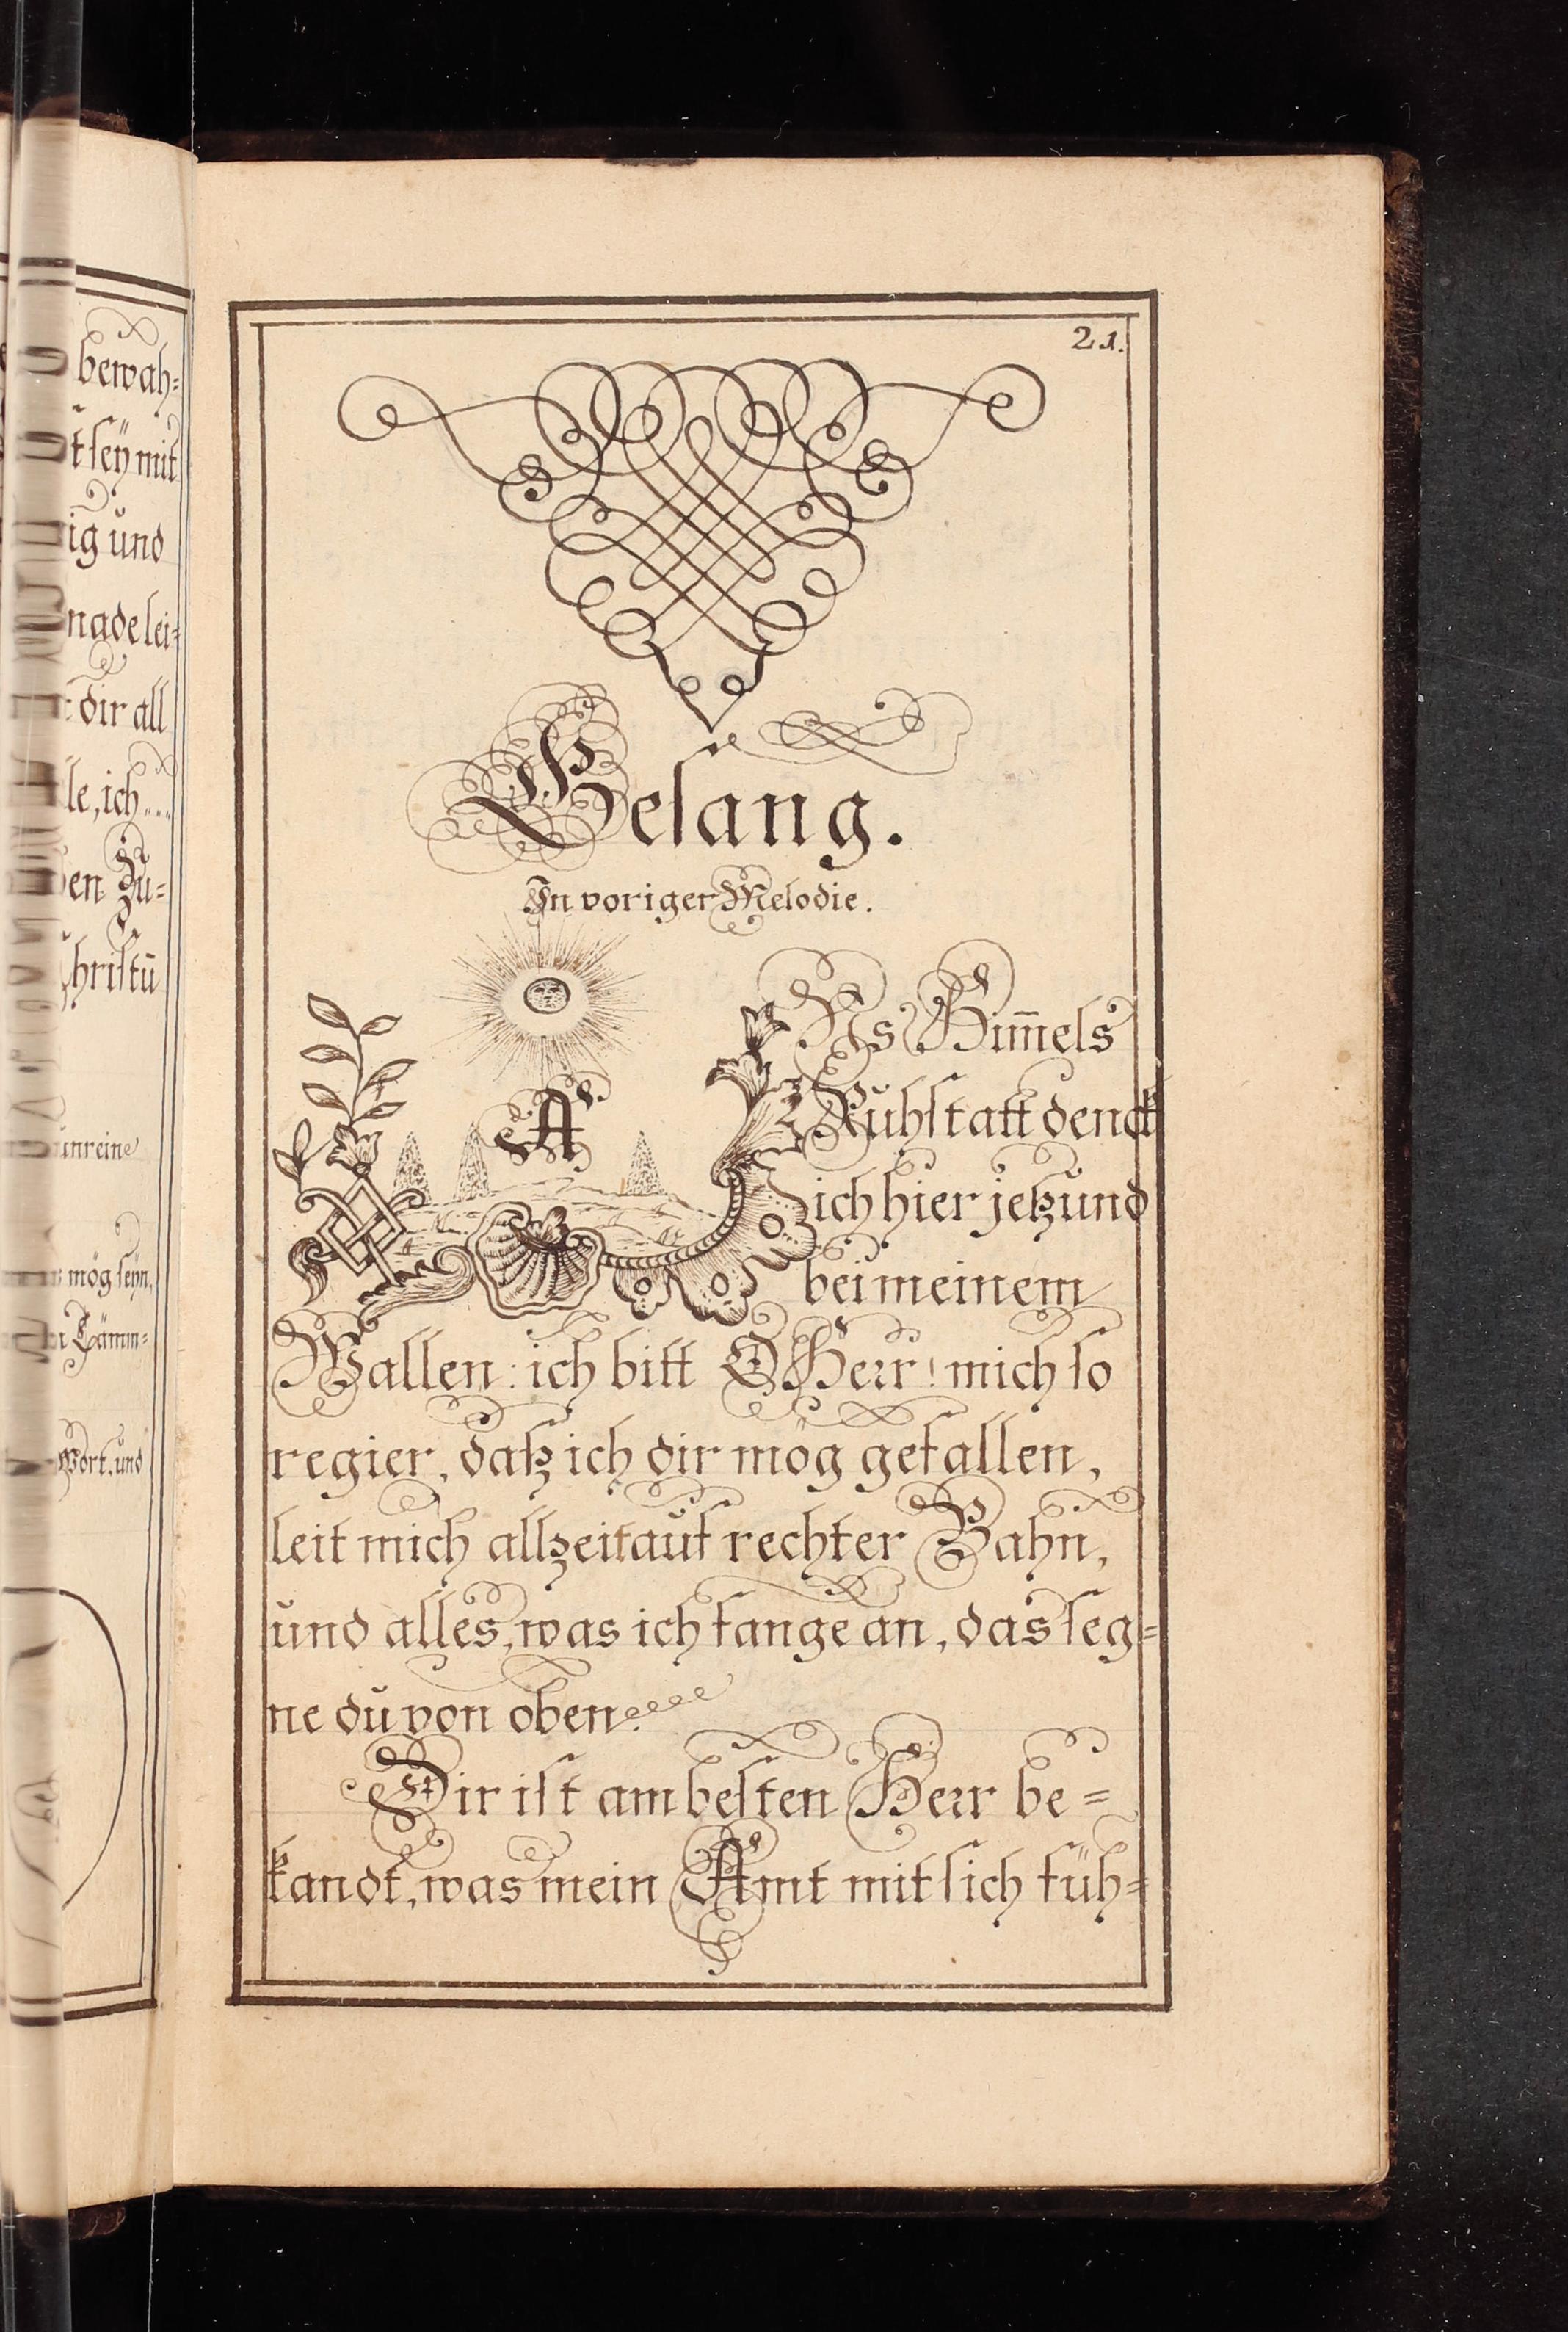 bewah=
t seÿ mit
ig und
nade lei=
dir all
le, ich
en Zu=
hristū
unreine
mög seÿn,
Lämm=
Wort, und
21.
Gesang.
In voriger Melodie.
A
Ns Him̄els
Ruhstatt denck
ich hier jetzund
bei meinem
Wallen: ich bitt O Herr! mich so
regier, daß ich dir mög gefallen,
leit mich allzeit auf rechter Bahn,
und alles, was ich fange an, das seg=
ne du von oben.
Dir ist am besten Herr be=
kandt, was mein Amt mit sich füh=